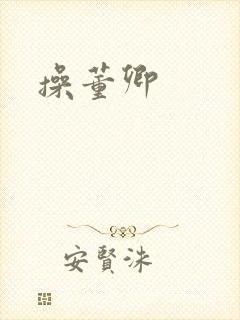 操董卿
安賢洙